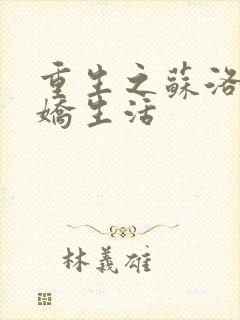 重生之蘇洛
嬌生活
林義雄